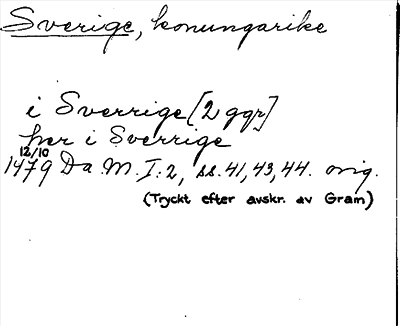 Sverige, konungarike
i Sverrige [2 ggr]
her i Sverrige
12/10
1479 Da. M. I:2, ss. 41, 43, 44. orig.
(Tryckt efter avskr. av Gram)